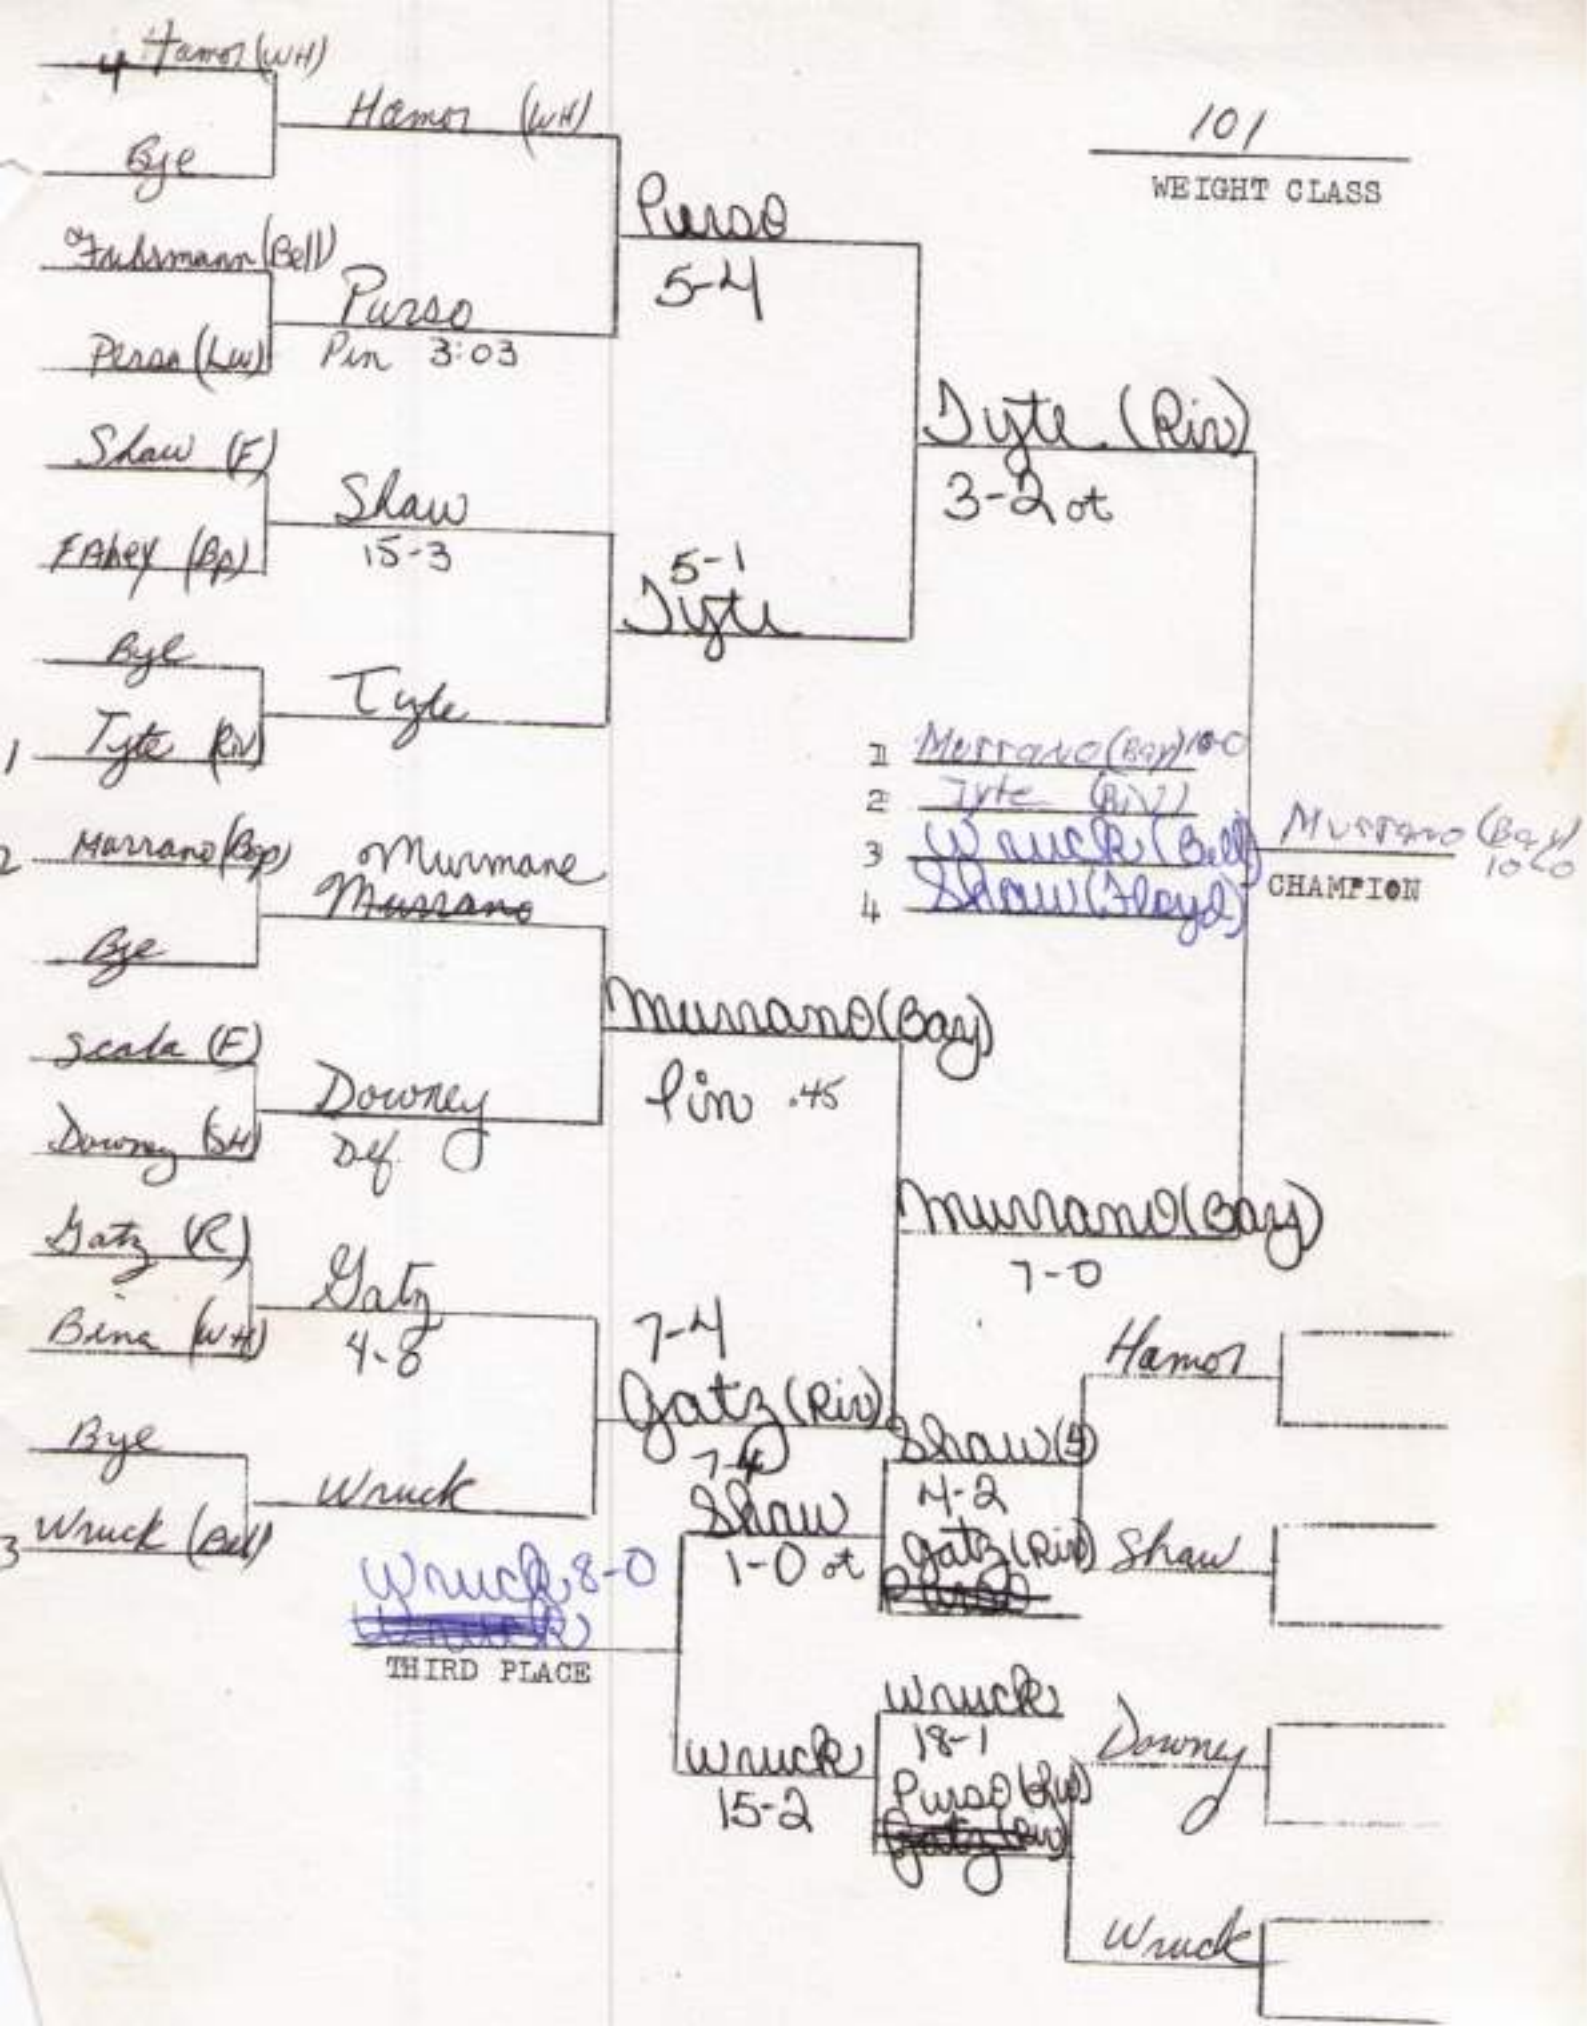 4 Hamor (WH)
Bye
Fussmann (Bell)
Perso (Lw)
Shaw (F)
FAhey (Bp)
Bye
1 Tyte (Riv)
2 Marrano (Bap)
Bye
Scala (F)
Downey (SH)
Gatz (R)
Bina (WH)
Bye
3 Wruck (Bell)
Hamor (WH)
Purso
Pin 3:03
Shaw
15-3
Tyte
Murmane
Murrano
Downey
Def.
Gatz
4-8
Wruck
Purso
5-4
5-1
Tyte
Murrano (Bay)
Pin .45
7-4
Gatz (Riv)
7-4
Tyte (Riv)
3-2 ot
Murrano (Bay)
7-0
101
WEIGHT CLASS
1 Murrano (Bay) 10-0
2 Tyte (Riv)
3 Wruck (Bell)
4 Shaw (Floyd)
Murrano (Bay)
10-0
CHAMPION
Hamor
Shaw
Downey
Wruck
Shaw (F)
4-2
Gatz (Riv)
Purso
Wruck
18-1
Purso (Lw)
Gatz (Riv)
Shaw
1-0 ot
Wruck
15-2
Wruck 8-0
Wruck
THIRD PLACE